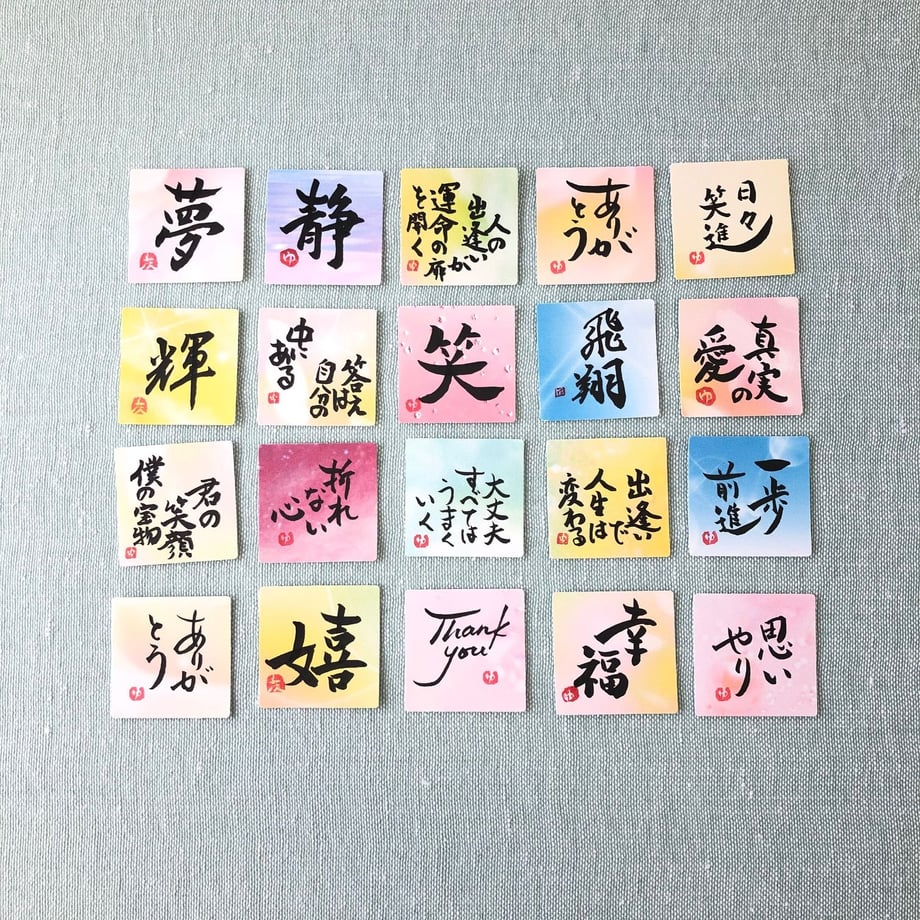 夢
静
人の
出逢いが
運命の扉
を開く
ありが
とう
日々
笑進
輝
答えは
自分の
中に
ある
笑
飛翔
真実の
愛
君の
笑顔
僕の宝物
折れ
ない
心
大丈夫
すべては
うまく
いく
出逢い
で
人生は
変わる
一歩
前進
ありが
とう
嬉
Thank
you!
幸
福
思い
やり